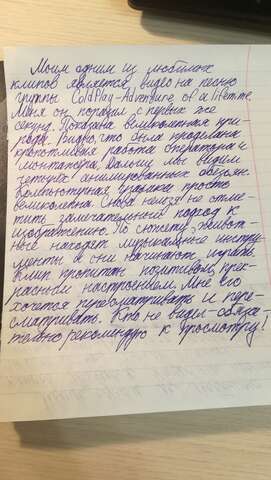 Моим одним из любимых
клипов является видео на песню
группы ColdPlay-Adventure of a lifetime.
Меня он поразил с первых же
секунд. Показана великолепная при-
рода. Видно, что была проделана
кропотливая работа оператора и
монтажёра. Дальше мы видим
четырёх анимированных обезьян.
Компьютерная графика просто
великолепна. Снова нельзя не отме-
тить замечательный подход к
изображению. По сюжету живот-
ные находят музыкальные инстру-
менты и они начинают играть.
Клип пропитан позитивом, прек-
расным настроением. Мне его
хочется пересматривать и пере-
сматривать. Кто не видел - обяза-
тельно рекомендую к просмотру!